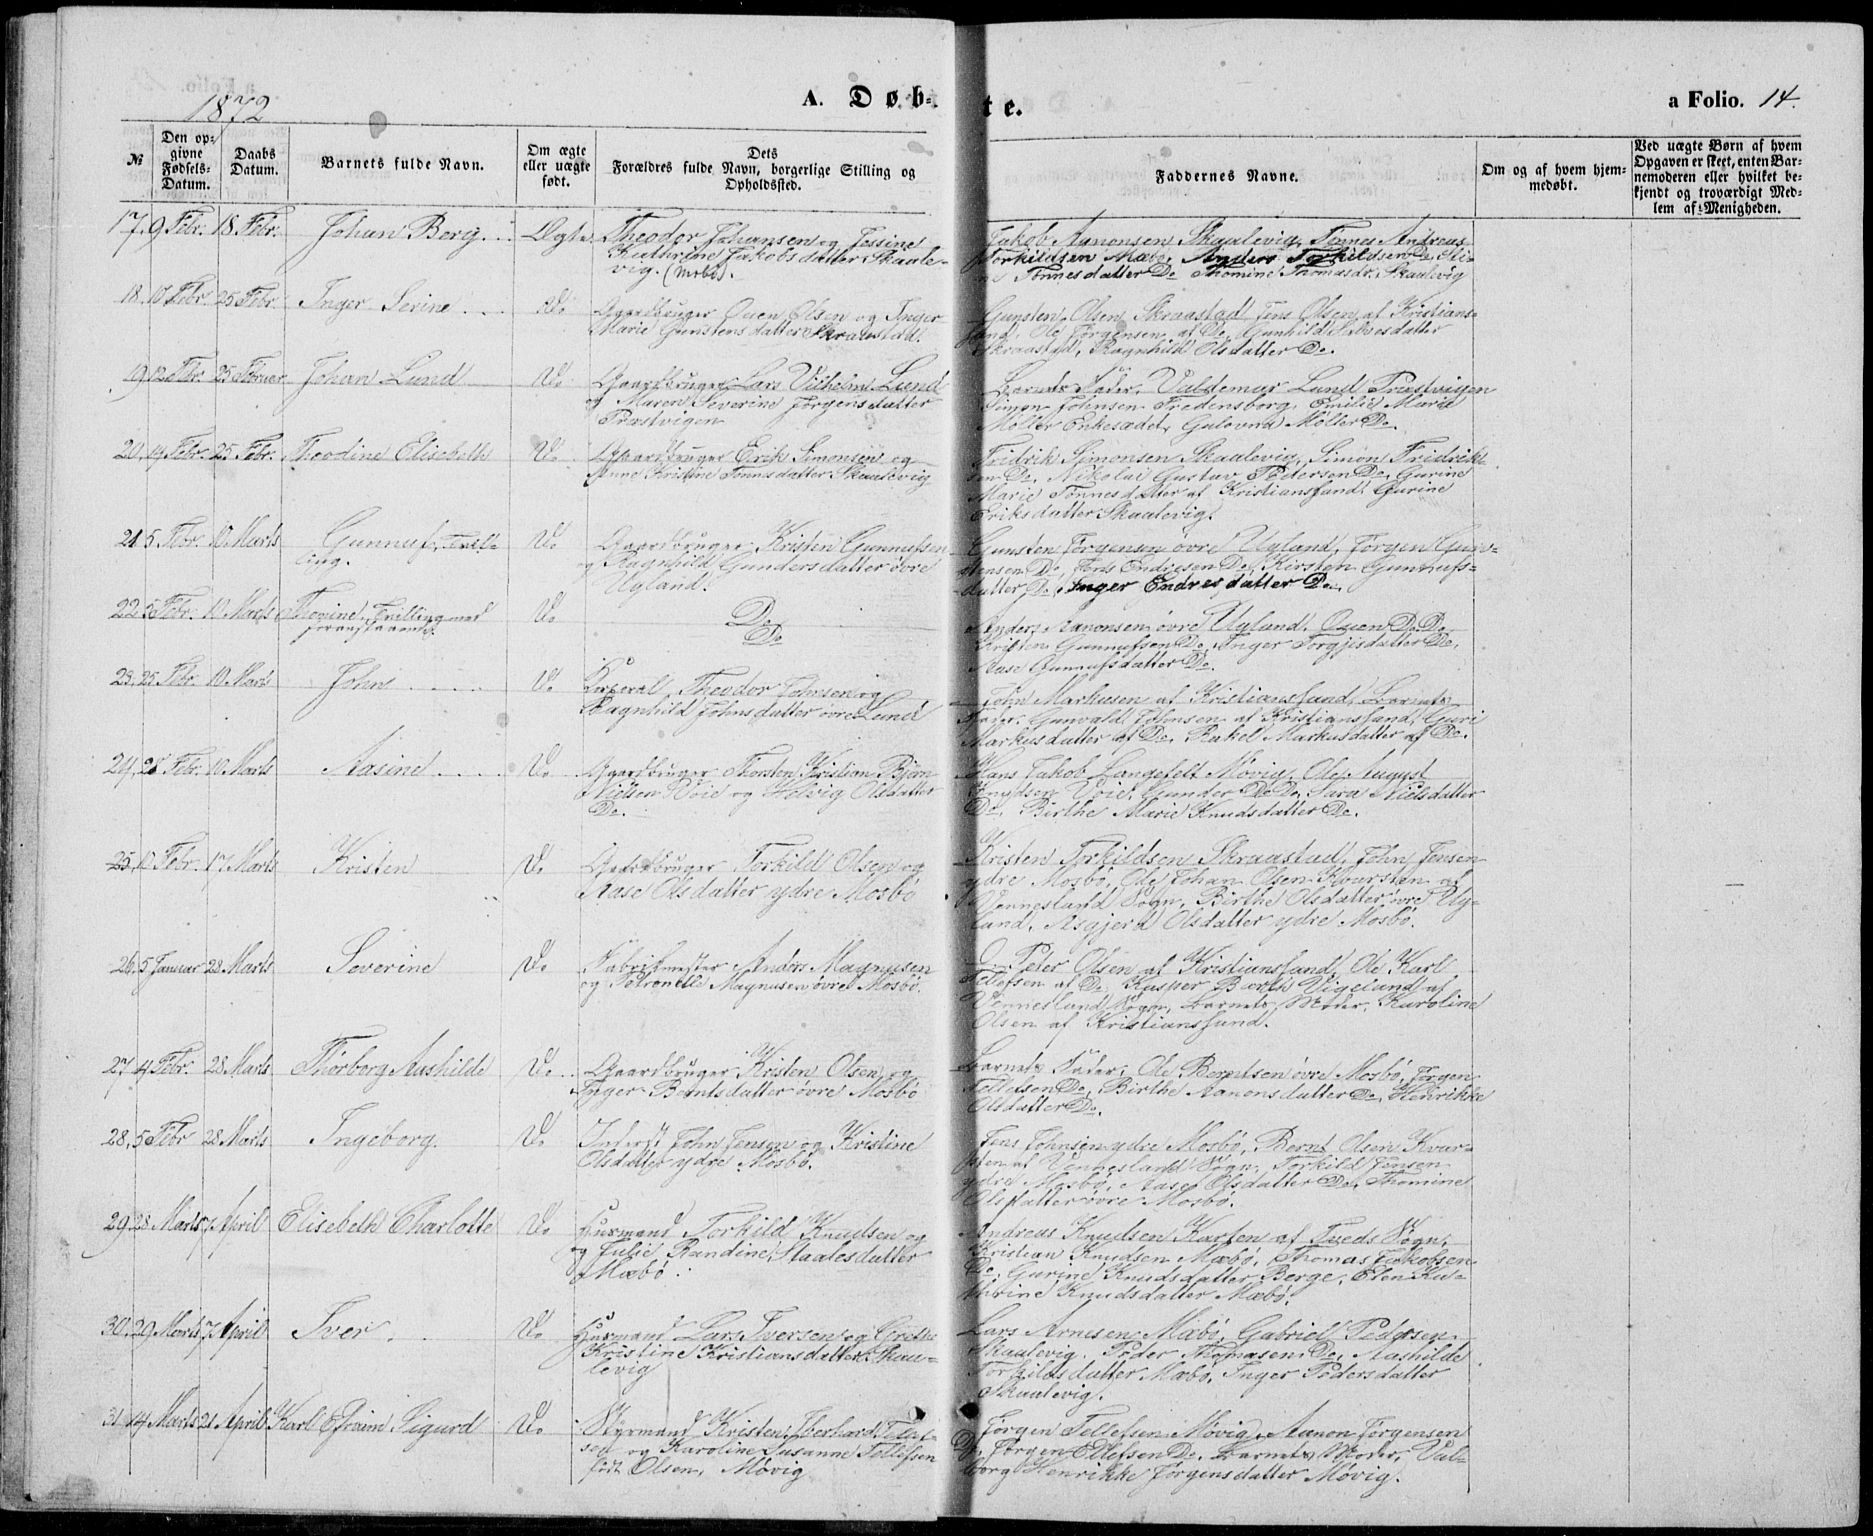 1872
A. Døb-
te.
a Folio. 14.
№
Den op-
givne
Fødsels-
Datum.
Daabs
Datum.
Barnets fulde Navn.
Om ægte
eller uægte
født.
Dets
Forældres fulde Navn, borgerlige Stilling og
Opholdssted.
Faddernes Navne.
Om og af hvem hjem-
medøbt.
Ved uægte Børn af hvem
Opgaven er skeet, enten Bar-
nemoderen eller hvilket be-
kjendt og troværdigt Med-
lem af Menigheden.
17. 9 Febr. 18 Febr. Johan Berg. Ægte
Theodor Johansen og Jessine
Kathrine Jakobsdatter Skaale-
vig. (Mebø).
Jakob Aanonsen Skaalevig, Tønnes Andreas
Torkildsen Mæbø, Anders Torkildsen Do, Eli-
ne Tønnesdatter Do Thomine Thomasdr. Skaalevig
18. 10 Febr. 25 Febr. Inger Serine Do
Gaardbruger Ouen Olsen og Inger
Marie Gunstensdatter Skraastad.
Gunsten Olsen Skraastad, Jens Olsen af Kristians-
sand, Ole Jørgensen af Do, Gunhild
Skraastad, Ragnhild Olsdatter Do.
19. 12 Febr. 25 Februar Johan Lund Do
Gaardbruger Lars Vilhelm Lund
og Maren Severine Jørgensdatter
Præstvigen
Barnets Fader, Valdemar Lund Præstvigen
Simon Johnsen Fredensborg, Emilie Marie
Møller Enkesædet, Gulovna Møller Do.
20. 14 Febr. 25 Febr. Theodine Elisebeth Do
Gaardbruger Erik Simonsen og
Anne Kirstine Tønnesdatter Skaalevig
Fridrik Simonsen Skaalevig, Simon Fridrik-
sen Do, Nikolai Gustav Pedersen Do, Gurine
Marie Tønnesdatter af Kristianssand, Gurine
Eriksdatter Skaalevig.
21. 5 Febr. 10 Marts Gunnuf, Tvil-
ling. Do
Gaardbruger Kristen Gunnufsen
og Ragnhild Gundersdatter øvre
Ugland.
Gunsten Jørgensen øvre Ugland, Jørgen Gun-
stensen Do, Jens Endresen Do, Kirsten Gunnufs-
datter Do, Inger Endresdatter Do.
22. 5 Febr. 10 Marts Thomine, Tvilling med
foranstaaende. Do
Do
Do
Anders Aanonsen øvre Ugland, Ouen Do Do
Kristen Gunnufsen Do, Inger Torgjisdatter Do,
Aase Gunnufsdatter Do.
23. 25 Febr. 10 Marts John Do
Korporal Theodor Johnsen og
Ragnhild Johnsdatter øvre Lund
John Markusen af Kristianssand, Barnets
Fader, Gunvald Johnsen af Kristianssand, Guri
Markusdatter af Do, Rakel Markusdatter af Do.
24. 21 Febr. 10 Marts Aasine Do
Gaardbruger Thorsten Kristian Bjørn
Nielsen Voie og Solvig Olsdatter
Do.
Hans Jakob Langefelt Møvig, Ole August
Knudsen Voie, Gunder Do Do, Sara Nielsdatter
Do, Birthe Marie Knudsdatter Do.
25. 10 Febr. 17 Marts Kristen Do
Gaardbruger Torkild Olsen og
Aase Olsdatter ydre Mosbø
Kristen Torkildsen Skraastad, John Jensen
ydre Mosbø, Ole Johan Olsen Kvarsten af
Vennesland Sogn, Birthe Olsdatter øvre Ug-
land, Asgjerd Olsdatter ydre Mosbø.
26. 5 Januar 28 Marts Severine Do
Fabrikmester Anders Magnusen
og Petronelle Magnusen øvre Mosbø.
O. Peter Olsen af Kristianssand, Ole Karl
Tellefsen af Do, Kasper Barth Vigeland af
Vennesland Sogn, Barnets Moder, Karoline
Olsen af Kristianssand.
27. 4 Febr. 28 Marts Thorborg Aashilde Do
Gaardbruger Kristen Olsen og
Inger Berntsdatter øvre Mosbø
Barnets Fader, Ole Berntsen øvre Mosbø, Jørgen
Tellefsen Do, Birthe Aanonsdatter Do, Henrikke
Olsdatter Do.
28. 5 Febr 28 Marts Ingeborg. Do
Inderst John Jensen og Kristine
Olsdatter ydre Mosbø.
Jens Johnsen ydre Mosbø, Bernt Olsen Kvar-
sten af Vennesland Sogn, Torkild Jensen
ydre Mosbø, Aase Olsdatter Do, Thomine
Olsdatter øvre Mosbø.
29. 28 Marts 7 April Elisebeth Charlotte Do
Husmand Torkild Knudsen og
og Julie Randine Staalesdatter
Mæbø.
Andreas Knudsen Karten af Tveds Sogn,
Kristian Knudsen Mæbø, Thomas Jakobsen
Do, Gurine Knudsdatter Berge, Elen Ka-
thrine Knudsdatter Mæbø.
30. 29 Marts 7 April Iver Do
Husmand Lars Iversen og Grethe
Kristine Kristiansdatter Skaa-
levig
Lars Arnesen Mæbø, Gabriel Pedersen
Skaalevig, Peder Thomasen Do, Aashilde
Torkildsdatter Mæbø, Inger Pedersdatter
Skaalevig.
31. 14 Marts 21 April Karl Efraim Sigurd Do
Styrmand Kristen Eberhard Tellef-
sen og Karoline Susanne Tellefsen
født Olsen, Møvig
Jørgen Tellefsen Møvig, Aanon Jørgensen
Do, Jørgen Tellefsen Do, Barnets Moder, Val-
borg Henrikke Jørgensdatter Møvig.